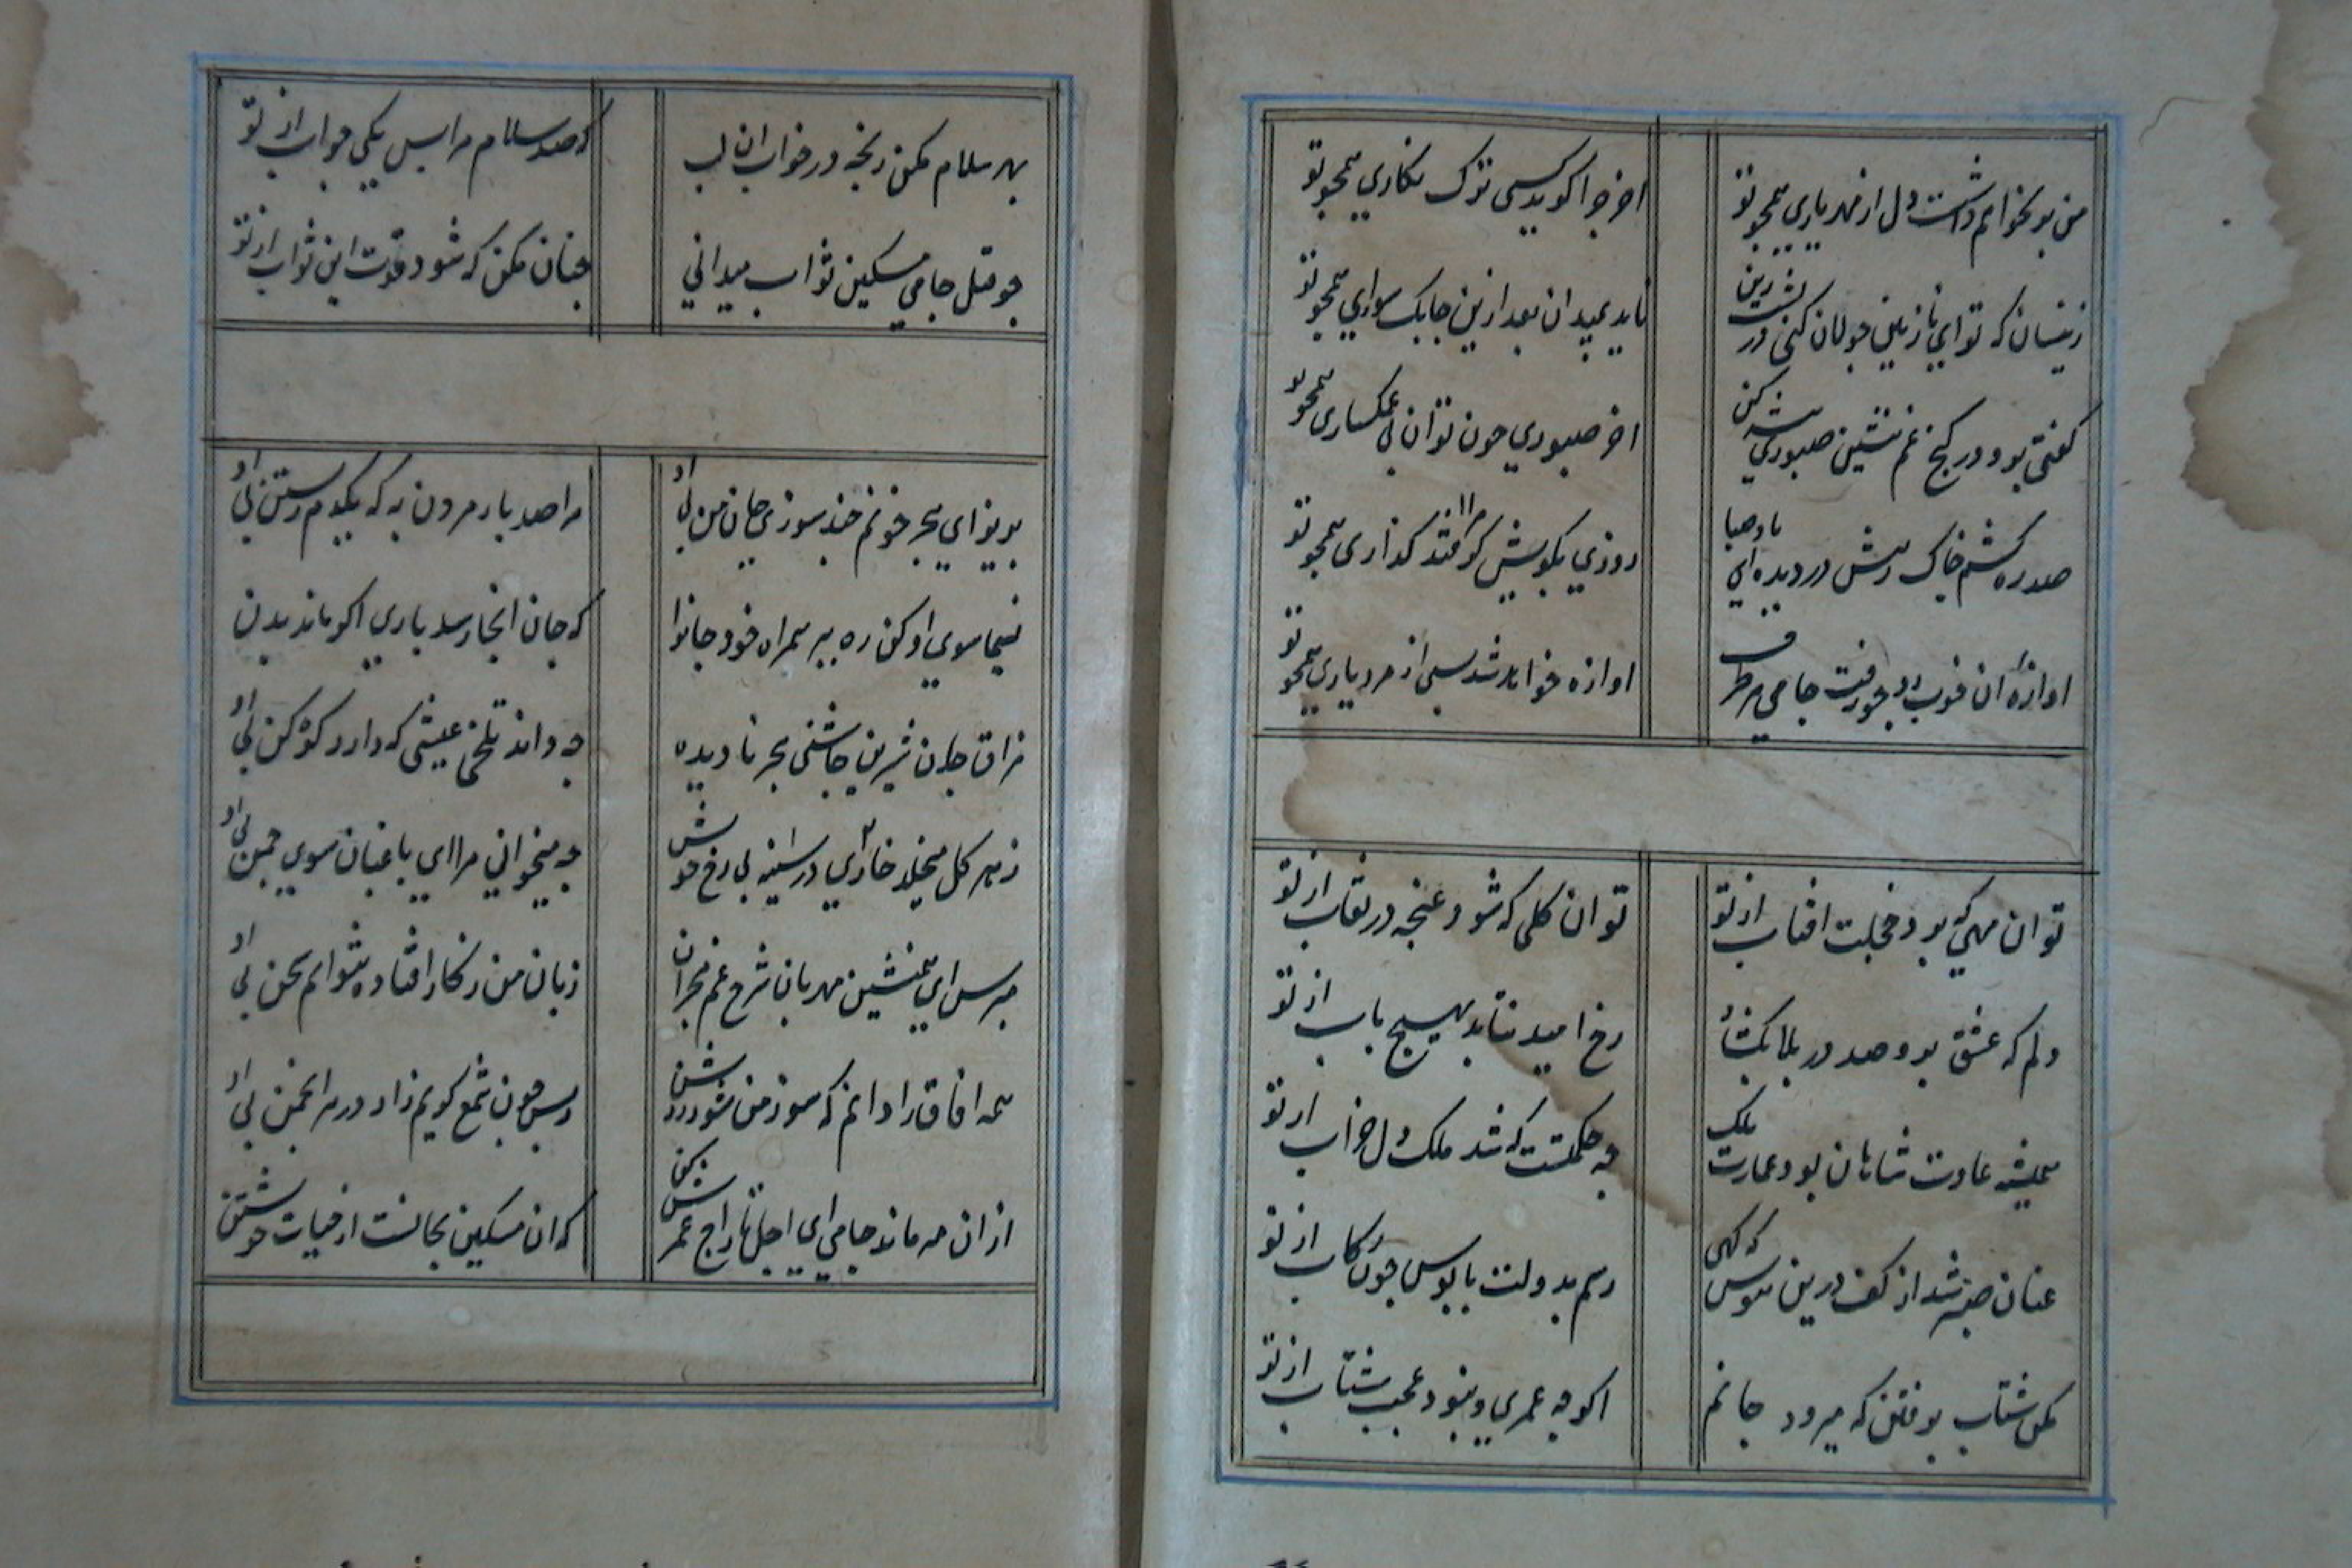 من برنخواهم داشت دل از مهر یاری همچو تو
اخر چرا کوید کسی ترک نکاری همچو تو
زینسان که تو ای نازنین جولان کنی در پشت زین
ناید بمیدان بعد ازین چابک سواری همچو تو
کفتی برو در کنج غم بنشین صبوری پیشه کن
اخر صبوری چون توان بی غمکساری همچو تو
صد ره کشم خاک رهش در دیده ای باد صبا
روزی بکویش کر مرا افتد کذاری همچو تو
اوازه ان خوب رو چون رفت جامی هر طرف
اوازه خواهد شد بسی از هر دیاری همچو تو
تو ان مهی که بود خجلت افتاب از تو
تو ان کلی که شود غنچه در نقاب از تو
دلم که عشق برو صد در بلا بکشاد
رخ امید نتابد بهیچ باب از تو
همیشه عادت شاهان بود عمارت ملک
چه حکمتست که شد ملک دل خراب از تو
عنان صبر شد از کف درین هوس که کهی
رسم بدولت پابوس چون رکاب از تو
مکن شتاب برفتن که میرود جانم
اکر چه عمری و نبود عجب شتاب از تو
بهر سلام مکن رنجه در جواب ان لب
که صد سلام مرا بس یکی جواب از تو
چو قتل جامی مسکین ثواب میدانی
چنان مکن که شود فوت این ثواب از تو
بریز ای هجر خونم چند سوزی جان من بی او
مرا صد بار مردن به که یکدم زیستن بی او
نسیما سوی او کن ره ببر همراه خود جانرا
که جان انجا رسد باری اکر ماند بدن
مذاق جان شیرین چاشنی هجر نادیده
چه داند تلخی عیشی که دارد کوهکن بی او
ز هر کل میخلد خاری در سینه بی رخ خوش
چه میخوانی مرا ای باغبان سوی چمن بی او
مپرس ای همنشین مهربان شرح غم هجران
زبان من ز کار افتاده نتوانم سخن بی او
همه افاق را دانم که سوز من شود روشن
ز بس چون شمع کریم زار در هر انجمن بی او
از ان مه ماند جامی ای اجل تاراج عمرش کن
که ان مسکین بجانست از حیات خویشتن